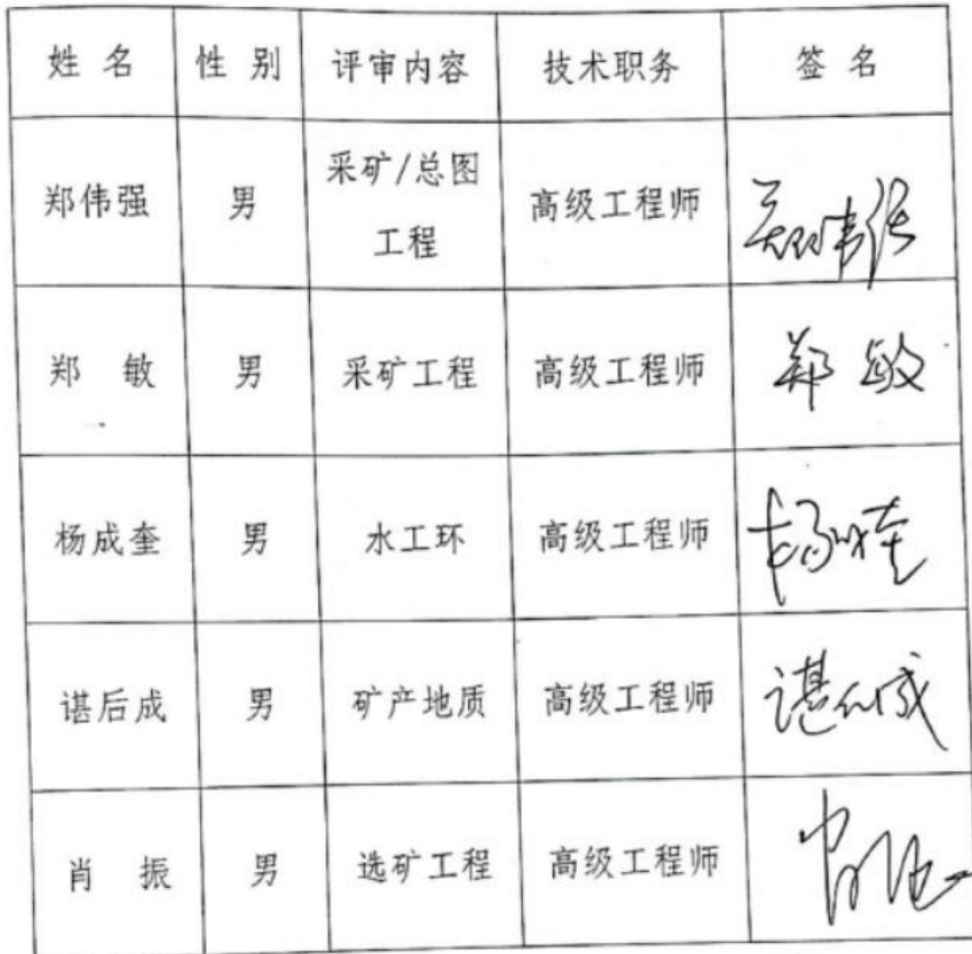 姓 名 性 别 评审内容 技术职务 签 名
郑伟强 男 采矿/总图 高级工程师 郑伟强
工程
郑 敏 男 采矿工程 高级工程师 郑敏
杨成奎 男 水工环 高级工程师 杨成奎
谌后成 男 矿产地质 高级工程师 谌后成
肖 振 男 选矿工程 高级工程师 肖振